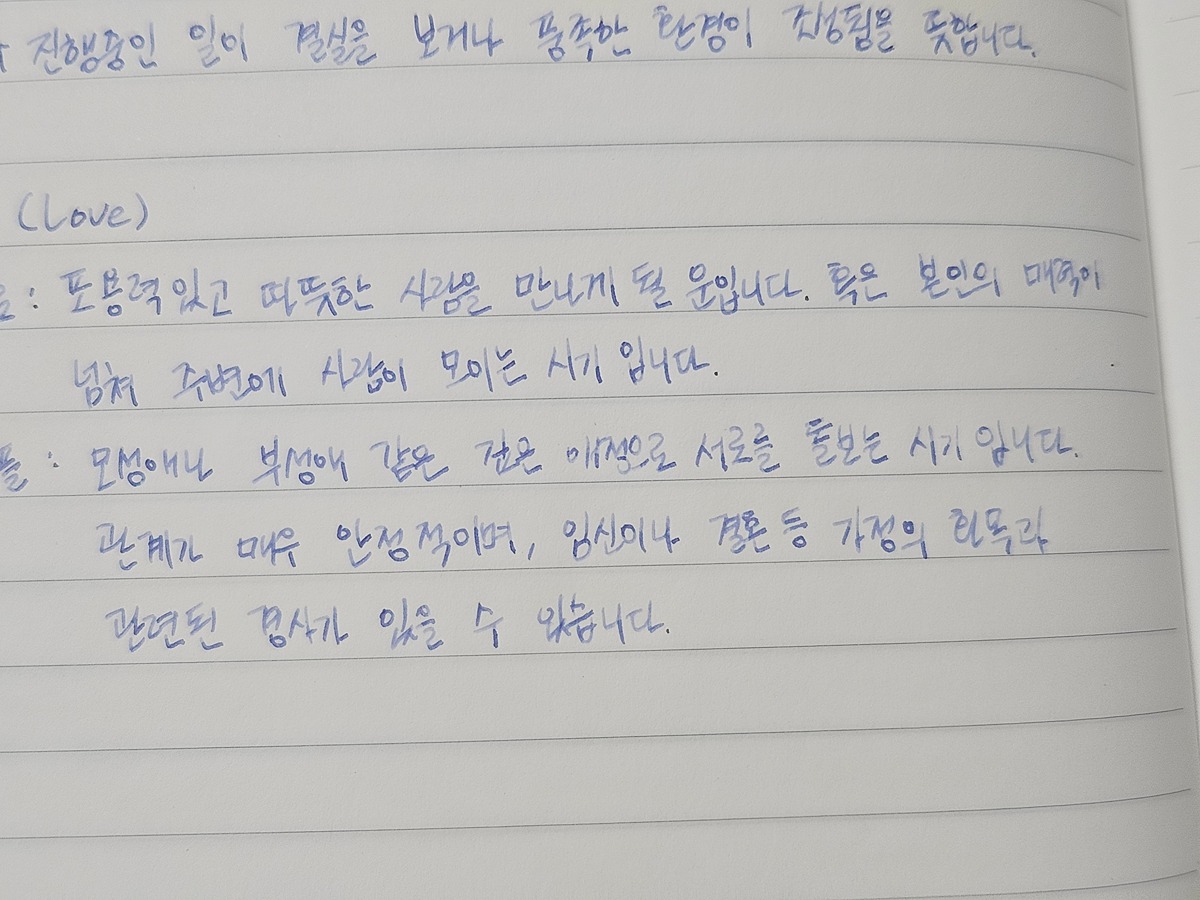 진행중인 일이 결실을 보거나 풍족한 환경이 조성됨을 뜻합니다.
(Love)
: 포용력있고 따뜻한 사람을 만나게 될 운입니다. 혹은 본인의 매력이
넘쳐 주변에 사람이 모이는 시기 입니다.
플 : 모성애나 부성애 같은 깊은 애정으로 서로를 돌보는 시기 입니다.
관계가 매우 안정적이며, 임신이나 결혼 등 가정의 화목과
관련된 경사가 있을 수 있습니다.